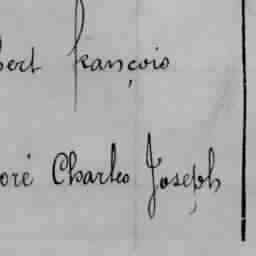 bert françois
oré Charles Joseph